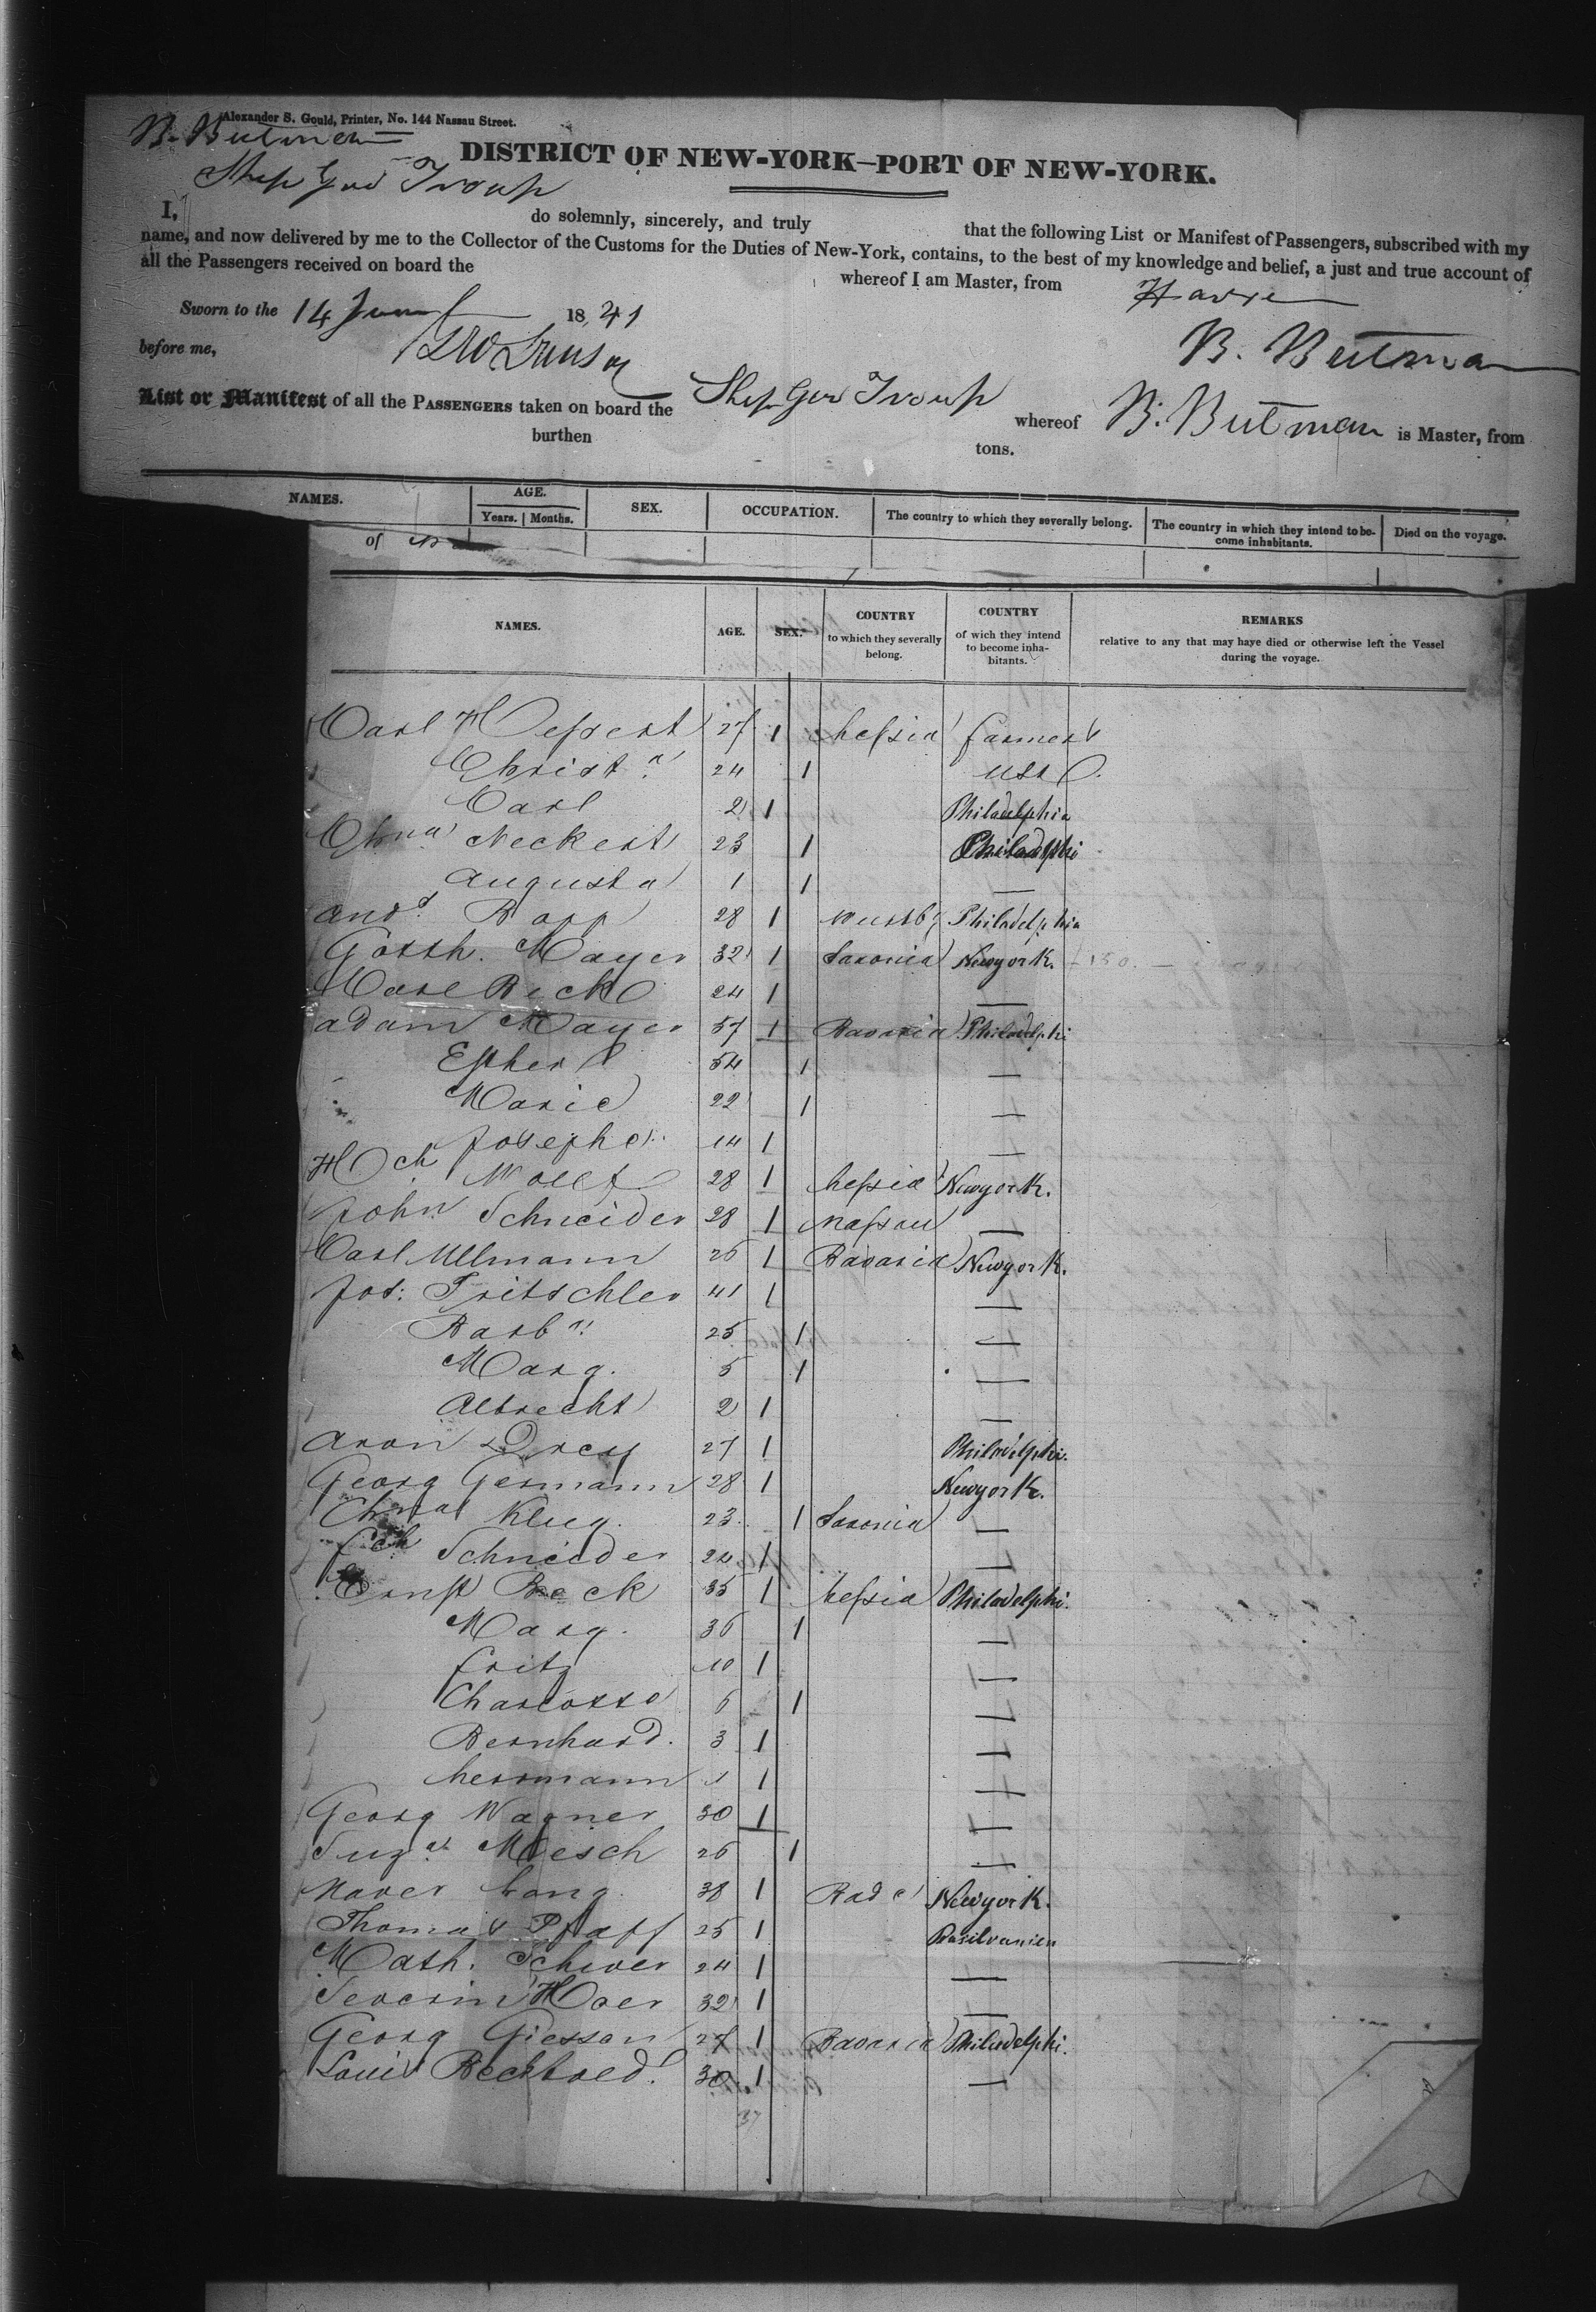 Alexander S. Gould, Printer, No. 144 Nassau Street.
B. Butman
DISTRICT OF NEW-YORK—PORT OF NEW-YORK.
Ship Gov Troup
I, do solemnly, sincerely, and truly that the following List or Manifest of Passengers, subscribed with my
name, and now delivered by me to the Collector of the Customs for the Duties of New-York, contains, to the best of my knowledge and belief, a just and true account of
all the Passengers received on board the whereof I am Master, from Havre
Sworn to the 14 June 1841
before me, B. Butman
List or Manifest of all the PASSENGERS taken on board the Ship Gov Troup whereof B. Butman is Master, from
burthen tons.
NAMES. AGE. Years. Months. SEX. OCCUPATION. The country to which they severally belong. The country in which they intend to become inhabitants. Died on the voyage.
of
NAMES. AGE. SEX. COUNTRY to which they severally belong. COUNTRY of wich they intend to become inhabitants. REMARKS relative to any that may haye died or otherwise left the Vessel during the voyage.
Carl 27 1 hessia farmer
Christ.a 24 1
Carl 2 1 Philadelphia
Chna Neckert 23 1 Philadelphi
Augusta 1 1 —
And.s Rapp 28 1 Wurtbg Philadelphia
Gotth. Mayer 32 1 Saxonia Newyork.
Carl Beck 24 1 —
Adam Mayer 57 1 Bavaria Philadelphi
Esther 54 1 —
Marie 22 1 —
Josephe 14 1 —
Hch Wolff 28 1 hessia Newyork.
John Schneider 28 1 Nassau —
Carl Ullmann 25 1 Bavaria Newyork.
Jos: Tritschler 41 1 —
Barb.a 25 1 —
Marg. 5 1 —
Albrecht 2 1 —
Aron Drey 27 1 Philadelphi.
Georg Germann 28 1 Newyork.
Chna Klug. 23 1 Saxonia —
Fch Schneider 24 1 —
Ernst Beck 35 1 hessia Philadelphi.
Marg. 36 1 —
fritz 10 1 —
Charlotte 6 1 —
Bernhard. 3 1 —
herrmann 1 1 —
Georg Wagner 30 1 —
Suza. Mesch 26 1 —
Xaver Lang. 38 1 Bade Newyork.
Thomas Pfaff 25 1
Math. Schwer 24 1 —
Severin 32 1 —
Georg Giessan 27 1 Bavaria Philadelphi.
Louis Bechtold. 30 1 —
37